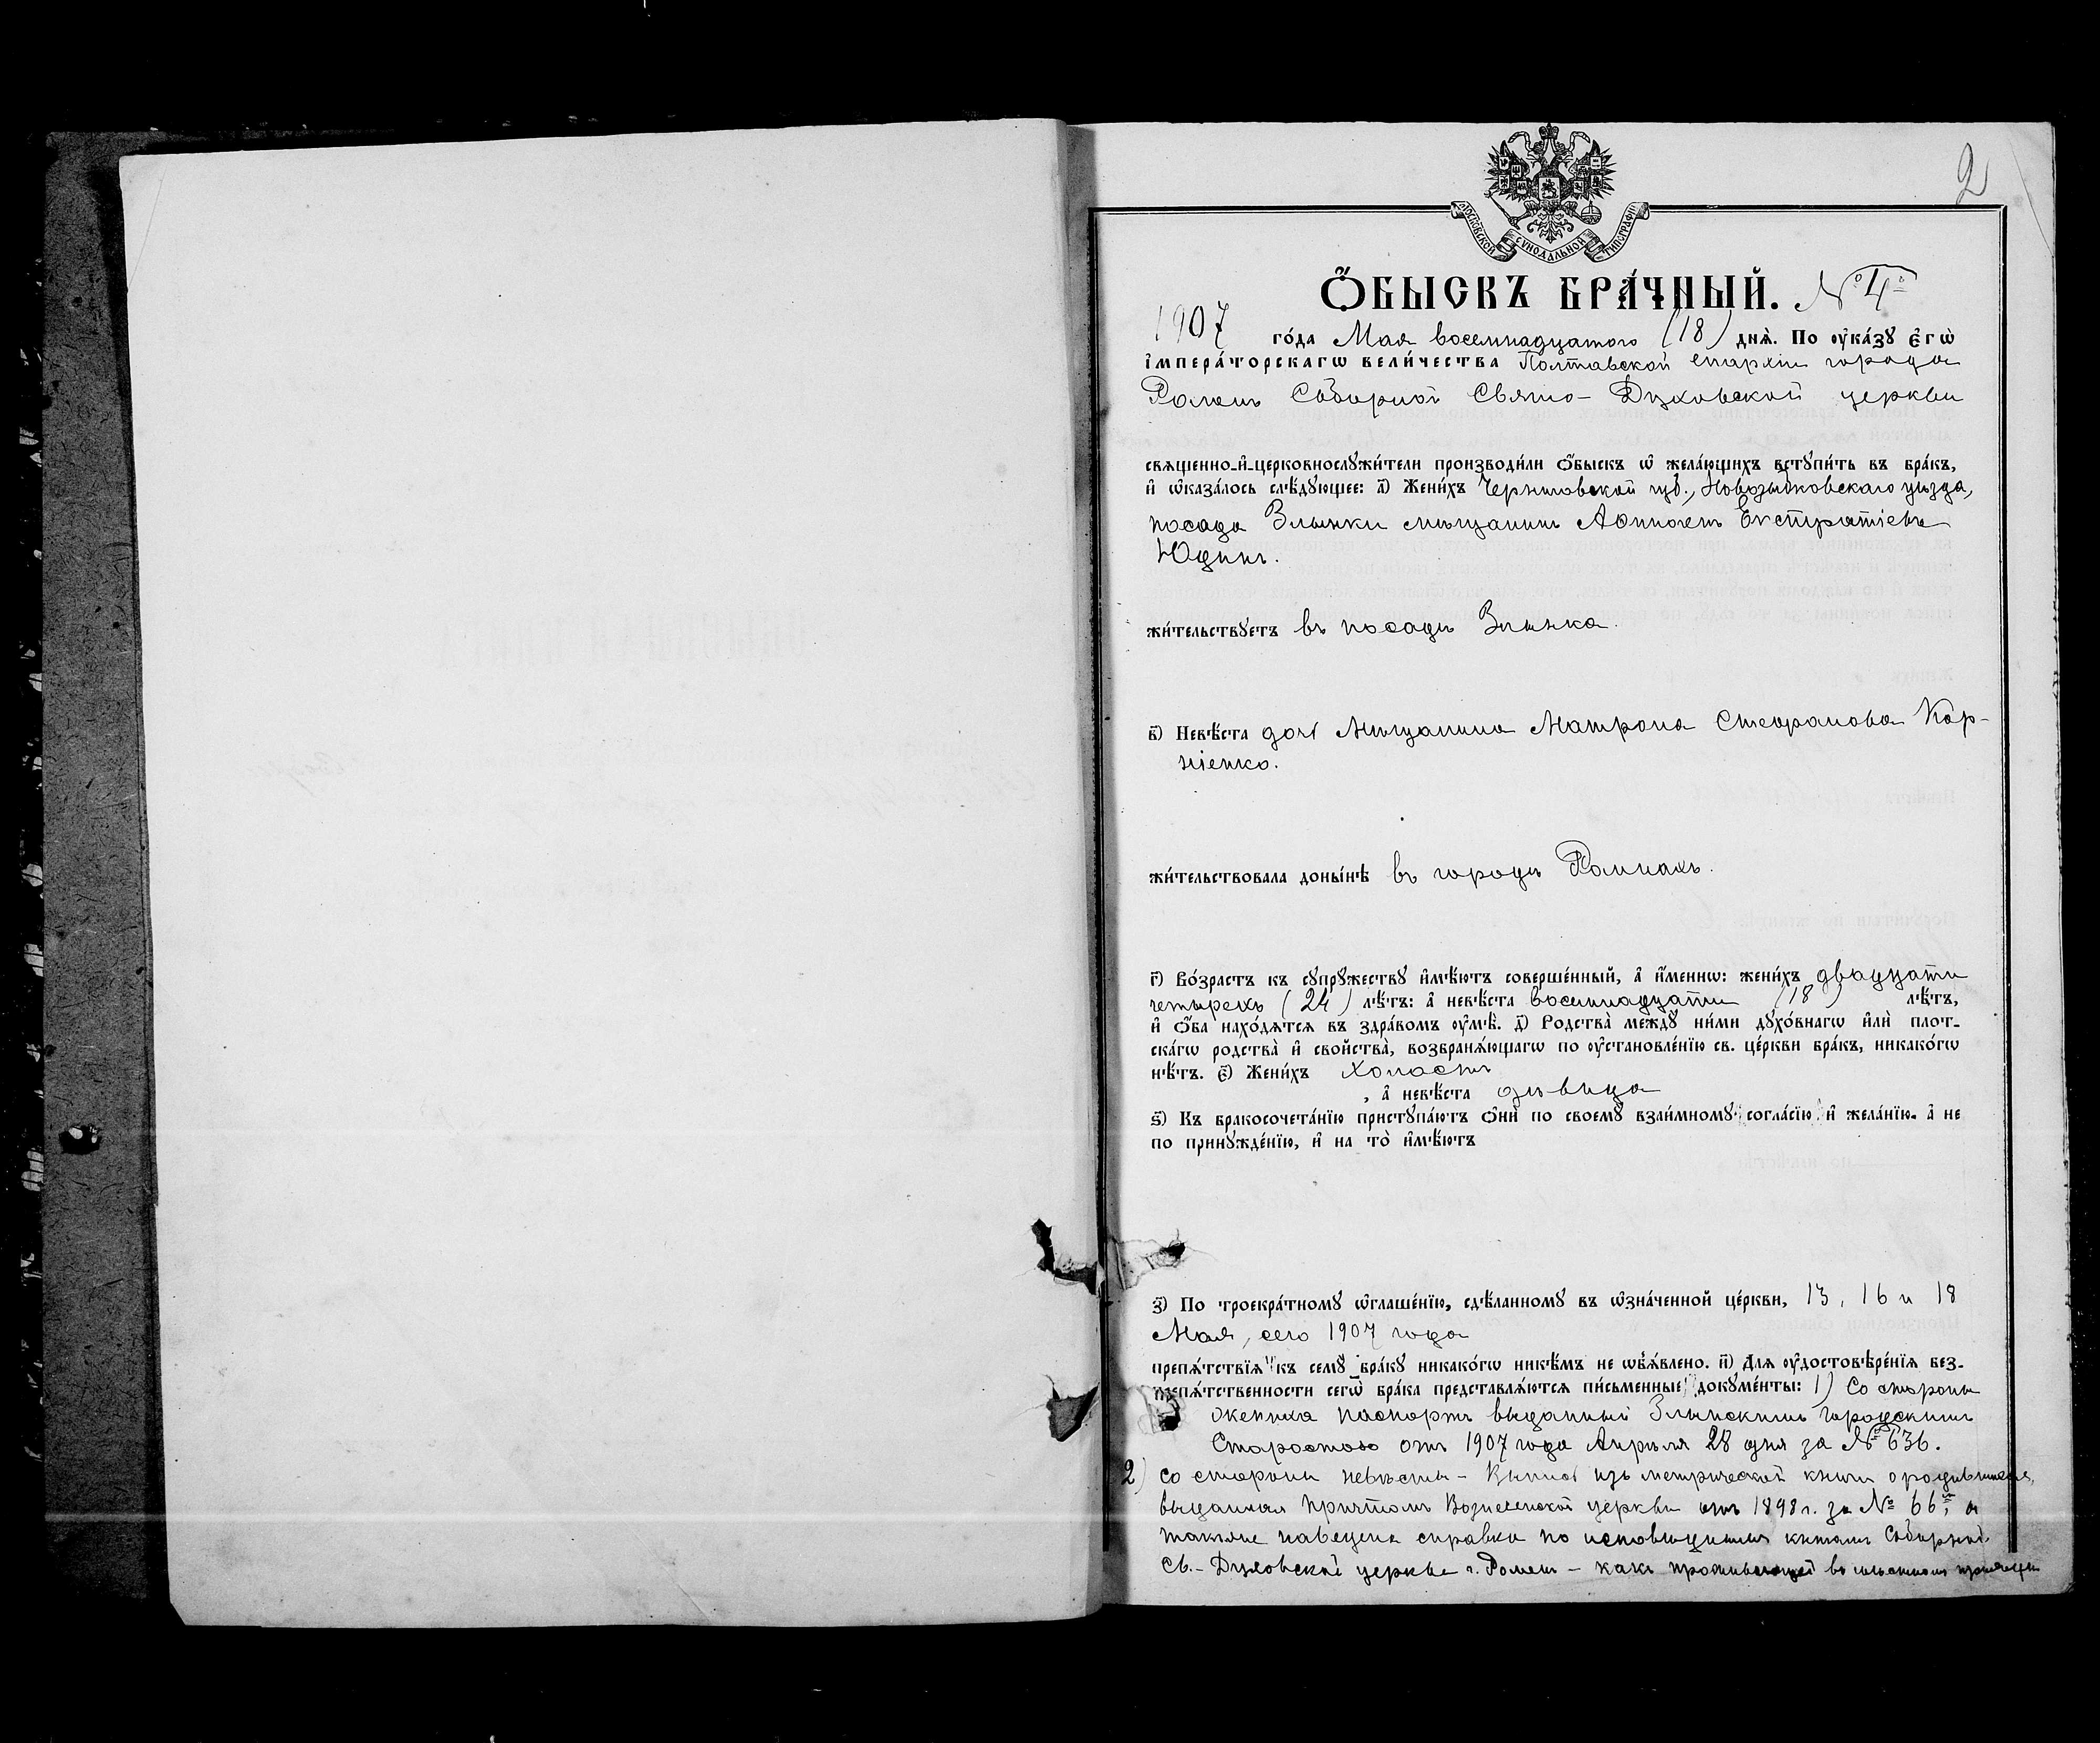 2
МОСКОВСКОЙ СѴНОДАЛЬНОЙ ТИПОГРАФІИ
Ѻ҆БЫСКЪ БРА́ЧНЫЙ. № 4й
1907 го́да Мая восемнадцатого (18) днѧ̀. По ᲂу҆ка́зꙋ є҆гѡ̀
і҆мпера́торскагѡ вели́чества Полтавской епархіи города
Ромен Соборной Свято-Духовской церкви
свѧщенно-и҆-церковнослꙋжи́тели производи́ли ѻ҆́быскъ ѡ҆ жела́ющихъ встꙋпи́ть въ бра́къ,
и҆ ѡ҆каза́лось слѣ́дꙋющее: а҃) Жени́хъ Черниговской губ., Новозыбковскаго уѣзда,
посада Злынки мѣщанинъ Евстратіевъ
Юдинъ.
жи́тельствꙋетъ въ посадѣ Злынка.
в҃) Невѣ́ста дочь Мѣщанина Матрона Стефанова Кор-
ніенко.
жи́тельствовала доны́нѣ въ городѣ Ромнахъ.
г҃) Во́зрастъ къ сꙋпрꙋ́жествꙋ и҆мѣ́ютъ соверше́нный, а҆ и҆́меннѡ: жени́хъ двадцати
четырехъ (24) лѣ́тъ: а҆ невѣ́ста восемнадцати (18) лѣ́тъ,
и҆ ѻ҆́ба нахо́дѧтсѧ въ здра́вомъ ᲂу҆мѣ̀. д҃) Родства̀ междꙋ̀ ни́ми дꙋхо́внагѡ и҆лѝ плот-
ска́гѡ родства̀ и҆ свойства̀, возбранѧ́ющагѡ по ᲂу҆становле́нїю св. це́ркви бра́къ, никако́гѡ
нѣ́тъ. є҃) Жени́хъ холостъ
, а҆ невѣ́ста дѣвица
ѕ҃) Къ бракосочета́нїю пристꙋпа́ютъ ѻ҆нѝ по своемꙋ̀ взаи́мномꙋ согла́сїю и҆ жела́нїю. а҆ не
по принꙋжде́нїю, и҆ на то̀ и҆мѣ́ютъ
з҃) По троекра́тномꙋ ѡ҆глаше́нїю, сдѣ́ланномꙋ въ ѡ҆зна́ченной це́ркви, 13, 16 и 18
Мая, сего 1907 года
препѧ́тствїѧ къ семꙋ̀ бра́кꙋ никако́гѡ никѣ́мъ не ѡ҆б̾ѧ́влено. и҃) Длѧ ᲂу҆достовѣре́нїѧ без-
препѧ́тственности сегѡ̀ бра́ка представлѧ́ютсѧ пи́сьменные докꙋме́нты: 1) Со стороны
жениха паспортъ выданный Злынскимъ городскимъ
Старостою отъ 1907 года Апрѣля 28 дня за № 636.
2) со стороны невѣсты - выпись изъ метрической книги о родившихся,
выданная причтомъ Вознесенской церкви отъ 1898 г. за № 66, а
также наведена справка по исповѣднымъ книгамъ Соборной
Св.-Духовской церкви г. Ромен - какъ проживающей въ приходѣ